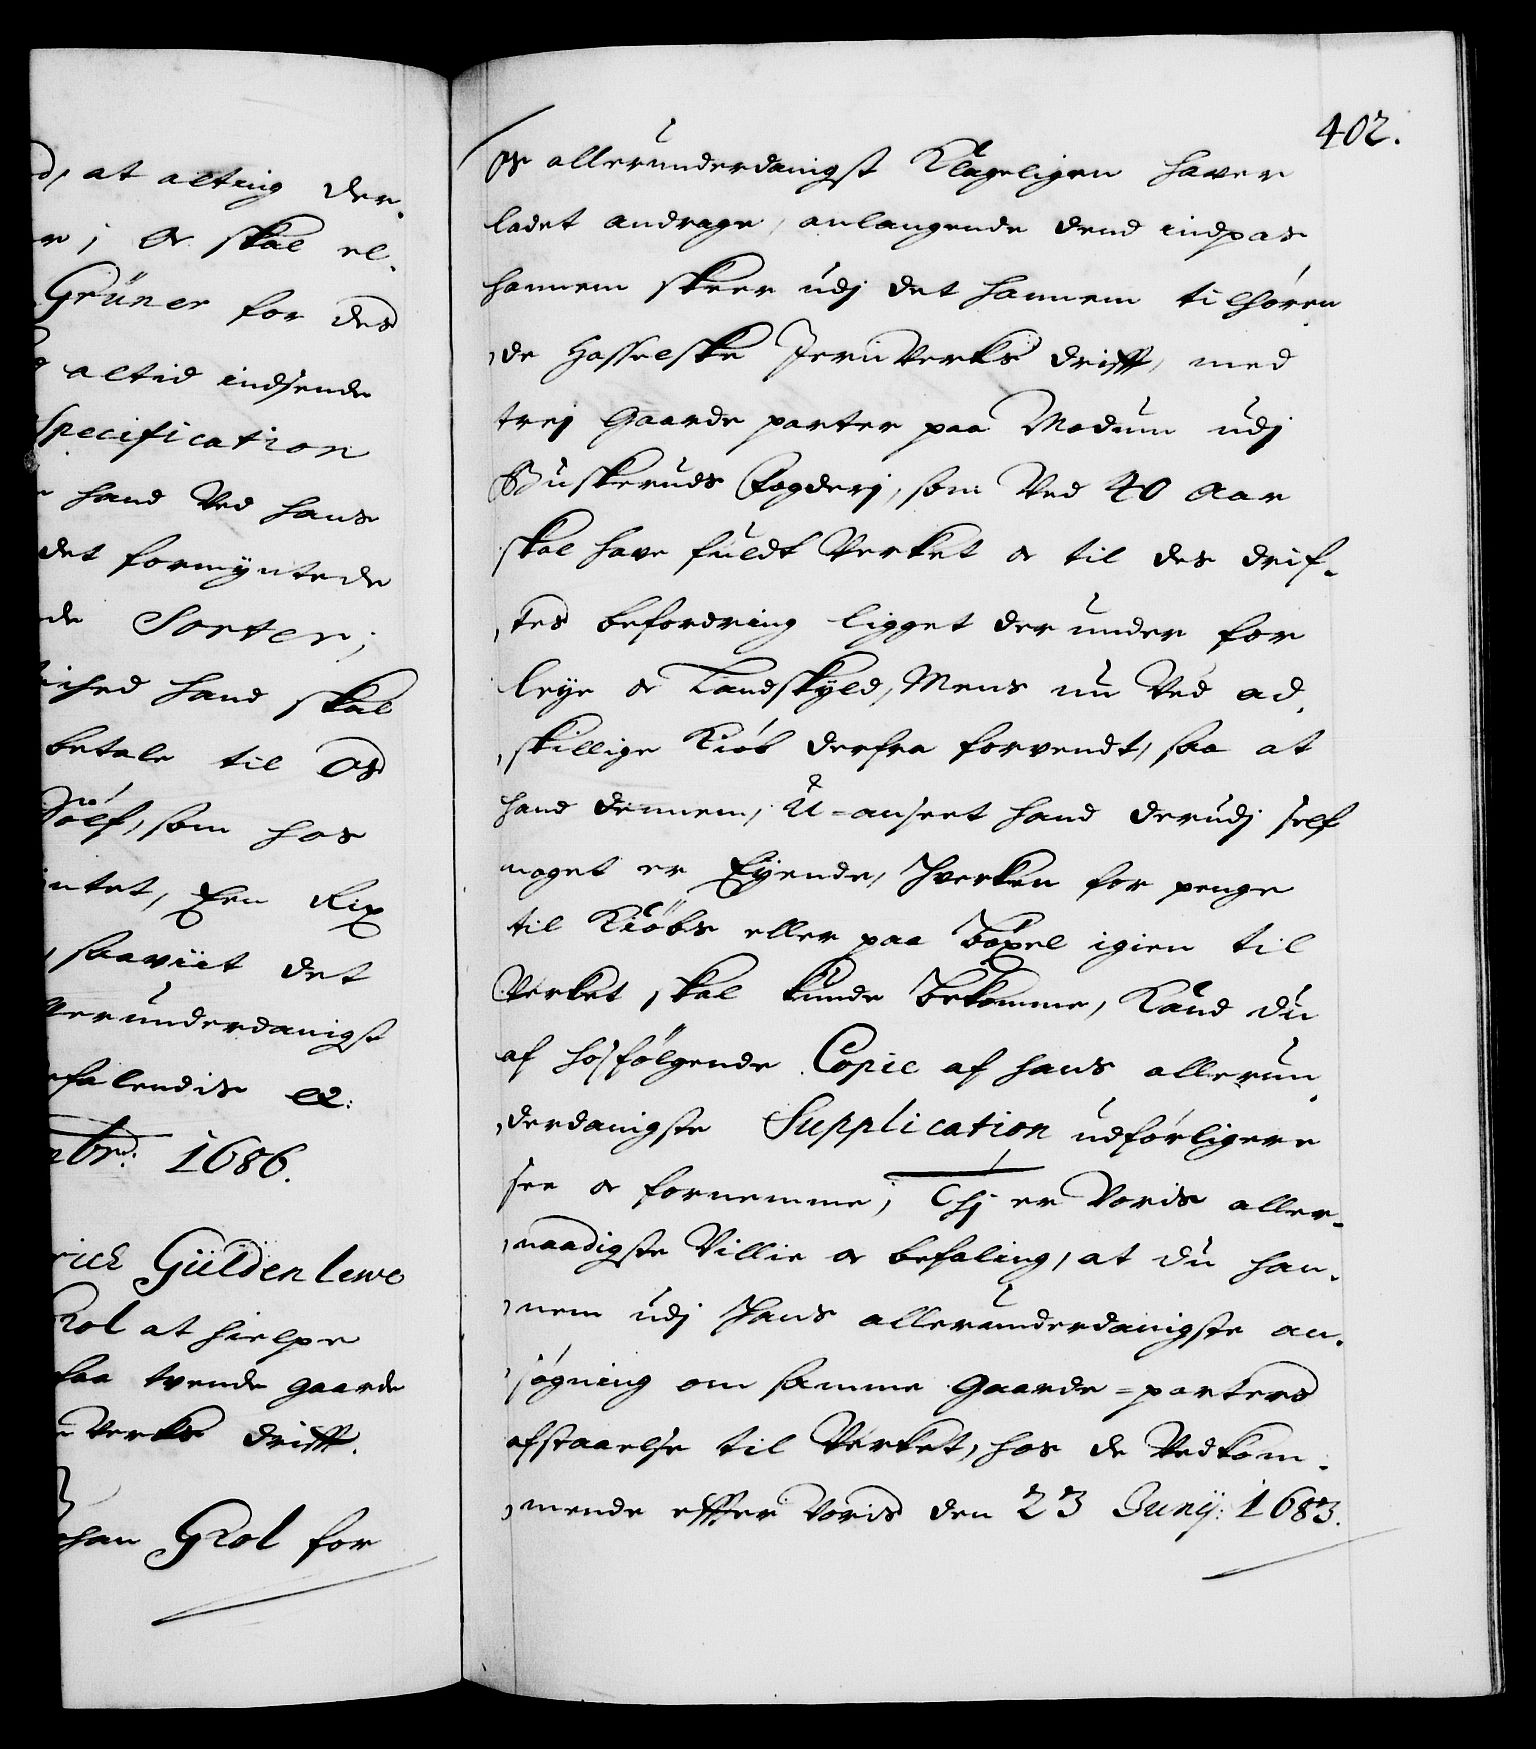 d, at alting der-
r; & skal el-
Grüner for des
altid indsende
Specification
hand Ved hans
det formyntede
de Sorter;
hed hand skal
betale til Os
Sölf, som hos
ntet, Een Rix
, saaviit det
erunderdanigst
efalendis &c:
br: 1686.
rich Güldenlewe
Krol at hielpe
faa tvende gaarde
Verks drifft.
ohan Krol for
402.
Os allerunderdanigst Klageligen haver
ladet andrage, anlangende dend indpas
hannem skeer udj det hannem tilhøren,
,de Hasselske Jern Verks drifft, med
trej Gaarde parter paa Modum udj
Buskeruds Fogderj, som Ved 40 Aar
skal have fuldt Verket & til des drif-
,tes befordring ligget der under for
leye & Landskyld, Mens nu Ved ad,
,skillige Kiøb derfra forvendt, saa at
hand dennem, U-anseet hand derudj self
noget er Eyende, Hverken for penge
til Kiøbs eller paa Boxel igien til
Verket skal kunde bekomme, Kand du
af hosfølgende Copie af hans allerun,
,derdanigste Supplication udførligere
see & fornemme; Thj er Voris aller-
,naadigste Villie & befaling, at du han-
,nem udj Hans allerunderdanigste an-
,søgning om samme Gaarde-parters
afstaaelse til Verket, hos de Vedkom-
,mende effter Voris den 23 Junij: 1683.